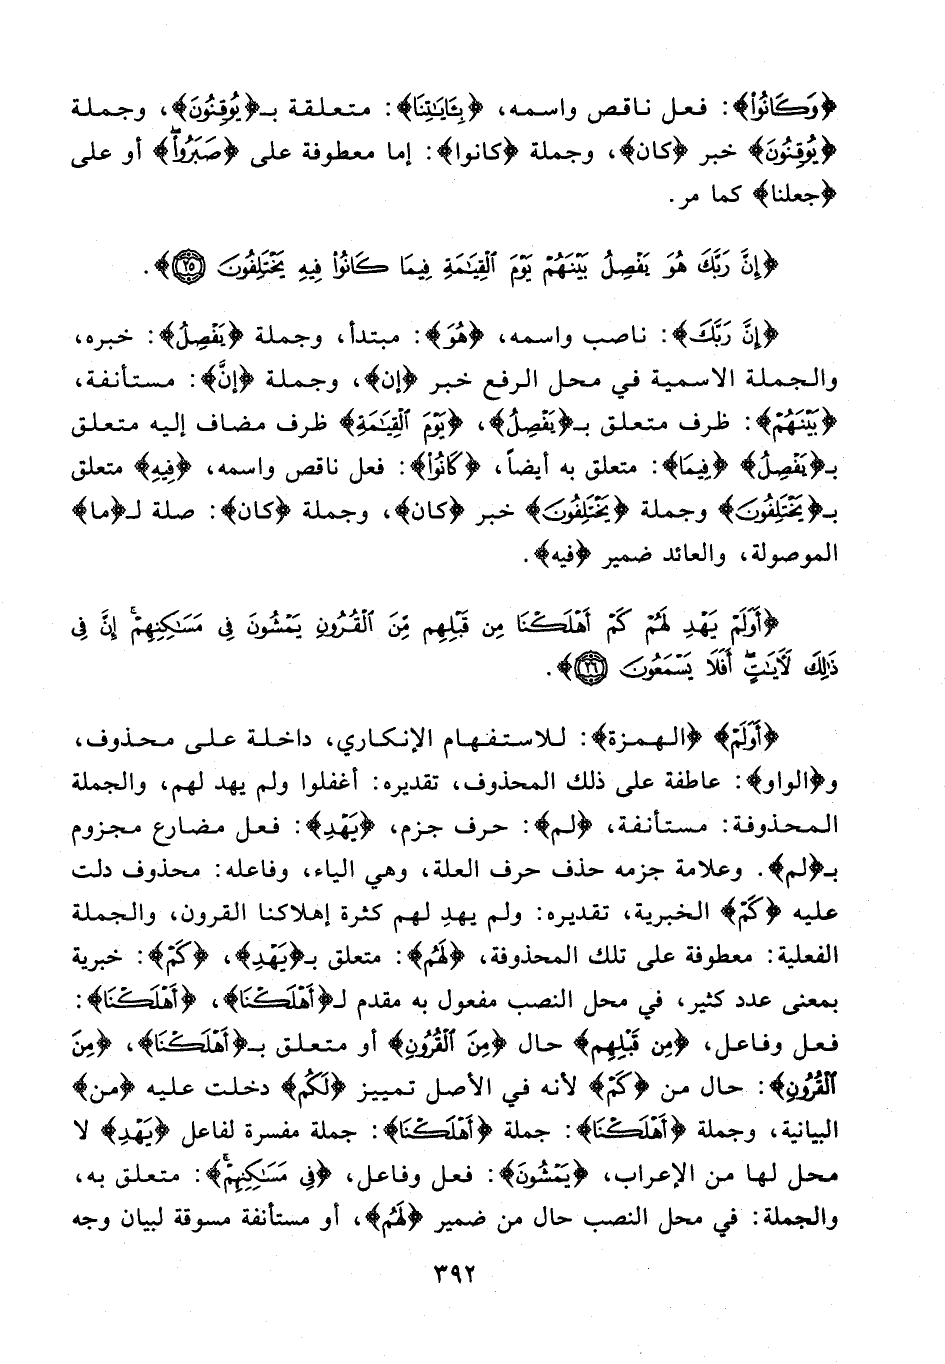 ﴿وَكَانُواْ﴾: فعل ناقص واسمه، ﴿بِـَٔايَٰتِنَا﴾: متعلقة بـ﴿يُوقِنُونَ﴾، وجملة
﴿يُوقِنُونَ﴾ خبر ﴿كان﴾، وجملة ﴿كانوا﴾: إما معطوفة على ﴿صَبَرُواْۖ﴾ أو على
﴿جعلنا﴾ كما مر.
﴿إِنَّ رَبَّكَ هُوَ يَفْصِلُ بَيْنَهُمْ يَوْمَ ٱلْقِيَٰمَةِ فِيمَا كَانُواْ فِيهِ يَخْتَلِفُونَ ٢٥﴾.
﴿إِنَّ رَبَّكَ﴾: ناصب واسمه، ﴿هُوَ﴾: مبتدأ، وجملة ﴿يَفْصِلُ﴾: خبره،
والجملة الاسمية في محل الرفع خبر ﴿إن﴾، وجملة ﴿إنَّ﴾: مستأنفة،
﴿بَيْنَهُمْ﴾: ظرف متعلق بـ﴿يَفْصِلُ﴾، ﴿يَوْمَ ٱلْقِيَٰمَةِ﴾ ظرف مضاف إليه متعلق
بـ﴿يَفْصِلُ﴾ ﴿فِيمَا﴾: متعلق به أيضاً، ﴿كَانُواْ﴾: فعل ناقص واسمه، ﴿فِيهِ﴾ متعلق
بـ﴿يَخْتَلِفُونَ﴾ وجملة ﴿يَخْتَلِفُونَ﴾ خبر ﴿كان﴾، وجملة ﴿كان﴾: صلة لـ﴿ما﴾
الموصولة، والعائد ضمير ﴿فيه﴾.
﴿أَوَلَمْ يَهْدِ لَهُمْ كَمْ أَهْلَكْنَا مِن قَبْلِهِم مِّنَ ٱلْقُرُونِ يَمْشُونَ فِي مَسَٰكِنِهِمْۚ إِنَّ فِي
ذَٰلِكَ لَأٓيَٰتٍۖ أَفَلَا يَسْمَعُونَ ٢٦﴾.
﴿أَوَلَمْ﴾ ﴿الهمزة﴾: للاستفهام الإنكاري، داخلة على محذوف،
و﴿الواو﴾: عاطفة على ذلك المحذوف، تقديره: أغفلوا ولم يهد لهم، والجملة
المحذوفة: مستأنفة، ﴿لم﴾: حرف جزم، ﴿يَهْدِ﴾: فعل مضارع مجزوم
بـ﴿لم﴾. وعلامة جزمه حذف حرف العلة، وهي الياء، وفاعله: محذوف دلت
عليه ﴿كَمْ﴾ الخبرية، تقديره: ولم يهدِ لهم كثرة إهلاكنا القرون، والجملة
الفعلية: معطوفة على تلك المحذوفة، ﴿لَهُمْ﴾: متعلق بـ﴿يَهْدِ﴾، ﴿كَمْ﴾: خبرية
بمعنى عدد كثير، في محل النصب مفعول به مقدم لـ﴿أَهْلَكْنَا﴾، ﴿أَهْلَكْنَا﴾:
فعل وفاعل، ﴿مِن قَبْلِهِم﴾ حال ﴿مِنَ ٱلْقُرُونِ﴾ أو متعلق بـ﴿أَهْلَكْنَا﴾، ﴿مِنَ
ٱلْقُرُونِ﴾: حال من ﴿كَمْ﴾ لأنه في الأصل تمييز ﴿لَكُم﴾ دخلت عليه ﴿من﴾
البيانية، وجملة ﴿أَهْلَكْنَا﴾: جملة ﴿أَهْلَكْنَا﴾: جملة مفسرة لفاعل ﴿يَهْدِ﴾ لا
محل لها من الإعراب، ﴿يَمْشُونَ﴾: فعل وفاعل، ﴿فِي مَسَٰكِنِهِمْۚ﴾: متعلق به،
والجملة: في محل النصب حال من ضمير ﴿لَهُمْ﴾، أو مستأنفة مسوقة لبيان وجه
٣٩٢